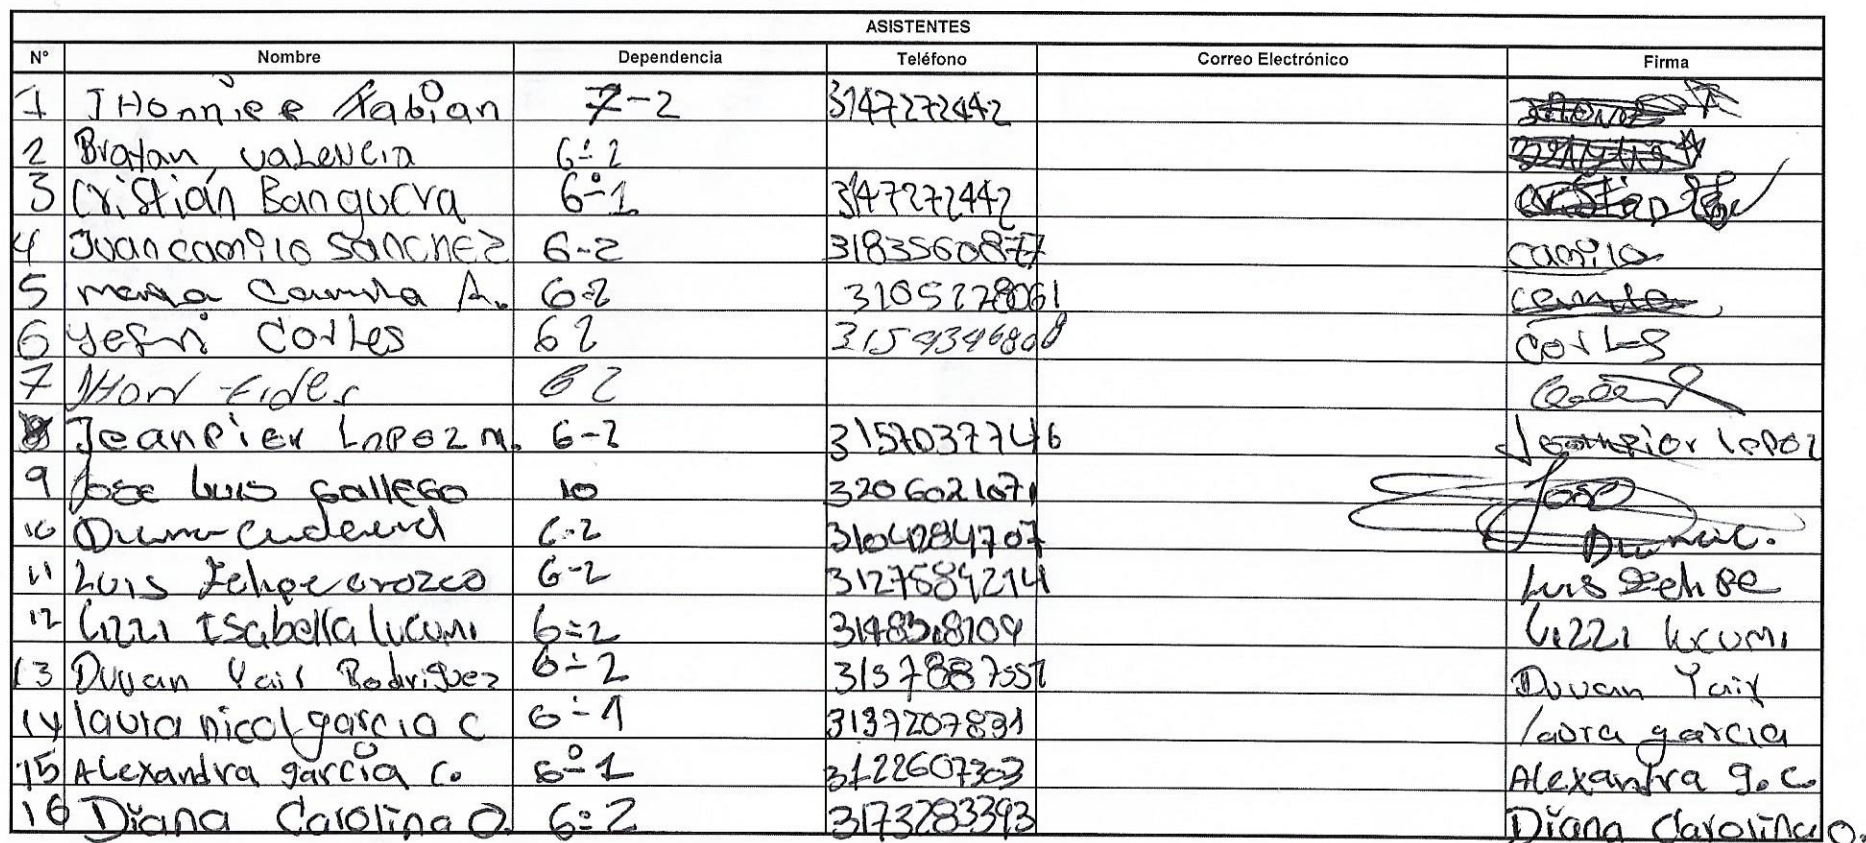 ASISTENTES
N° Nombre Dependencia Teléfono Correo Electrónico Firma
1 JHonniee Fabian 7-2 3147272442
2 Brayan valencia 6-2
3 Cristián Banguera 6-1 3147272442
4 Juan camilo sanchez 6-2 3183560877 camilo
5 maria Camila A. 6-2 3105278061
6 yefri Cortes 62 Cortes
7 JHon 62
8 JeanPier Lopez M. 6-2 3157037746 lopoz
9 Jose Luis Gallego 10 3206021071 Jose
10 6-2 3104284707
11 Luis Felipe Orozco 6-2 3127584214 Luis Felipe
12 Lizzi Isabella lucumi 6-2 Lizzi lucumi
13 Duvan Yair Rodriguez 6-2 3157887557 Duvan Yair
14 laura nicol garcia C 6-1 3137207831 laura garcia
15 Alexandra garcía C. 6-1 3122607303 Alexandra g.c.
16 Diana Carolina O. 6-2 3173283393 Diana Carolina O.